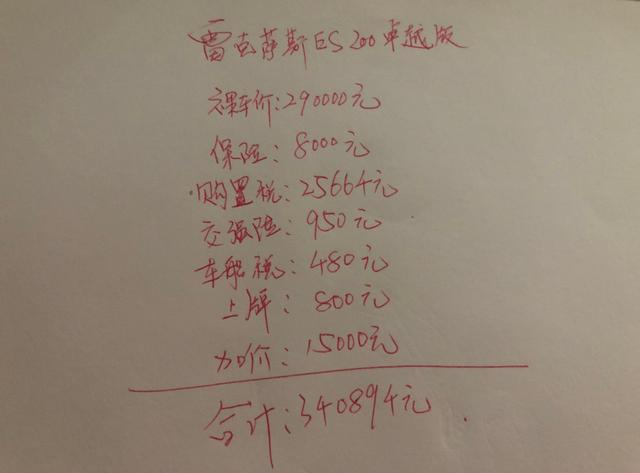 雷克萨斯ES200卓越版
裸车价:290000元
保险:8000元
购置税:25664元
交强险:950元
车船税:480元
上牌:800元
加价:15000元
合计:340894元